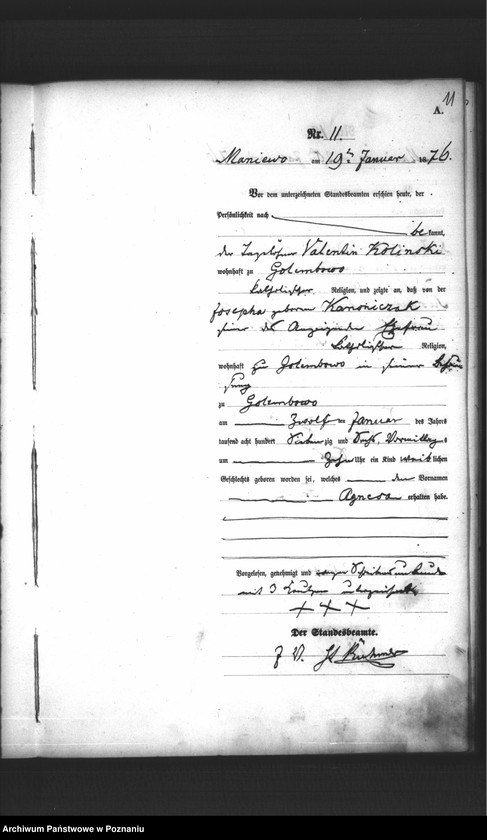 11
A.
Nr. 11.
Maniewo am 19ten Januar 1876.
Vor dem unterzeichneten Standesbeamten erschien heute, der
Persönlichkeit nach
bekannt,
der Tagelöhner Valentin Kolinski
wohnhaft zu Golembowo
katholischer Religion, und zeigte an, daß von der
Josepha geborene Kanoniczak
des Anzeigenden Ehefrau
katholischer Religion,
wohnhaft zu Golembowo in seiner Behau
sung
zu Golembowo
am zwölf ten Januar des Jahrs
tausend acht hundert Siebenzig und Sechs, Vormittags
um Zehn Uhr ein Kind weiblichen
Geschlechts geboren worden sei, welches den Vornamen
Agnes erhalten habe.
Vorgelesen, genehmigt und wegen Schreibensunkunde
mit 3 Kreuzen
+ + +
Der Standesbeamte.
J. V.
Archiwum Państwowe w Poznaniu